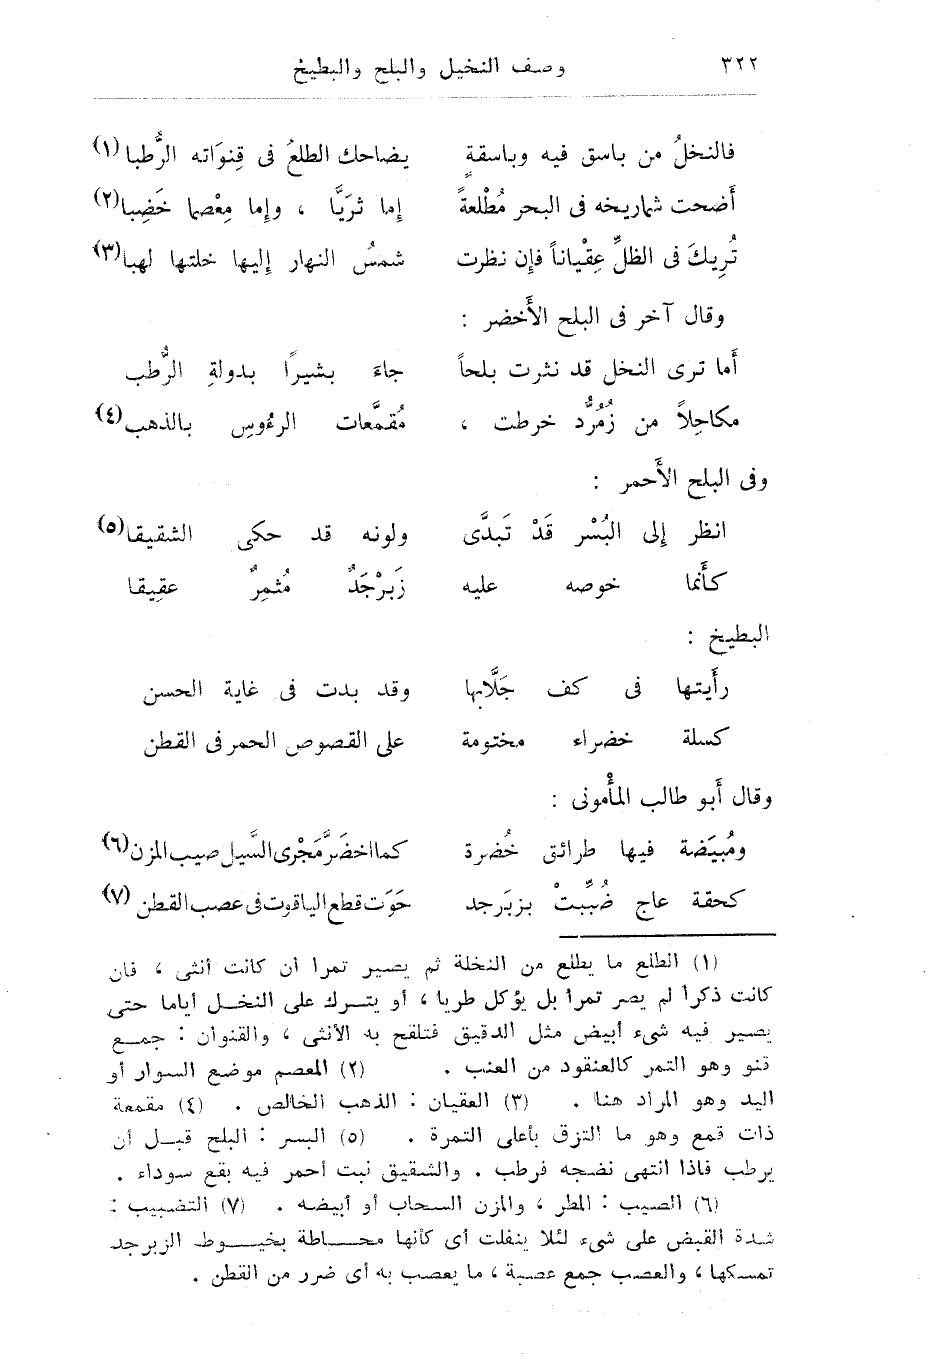 ٣٢٢ وصف النخيل والبلح والبطيخ
فالنخلُ من باسق فيه وباسقةٍ يضاحك الطلعُ فى قِنوَاته الرُّطبا (١)
أَضحت شماريخه فى البحر مُطْلعةً إما ثرَيَّا ، وإما مِعْصما خَضِبا (٢)
تُرِيكَ فى الظلِّ عِقْياناً فإن نظرت شمسُ النهار إليها خلتها لهبا (٣)
وقال آخر فى البلح الأَخضر :
أَما ترى النخل قد نثرت بلحاً جاءَ بشيرًا بدولةِ الرُّطب
مكاحِلاً من زُمُرُّد خرطت ، مُقمَّعات الرءُوسِ بالذهب (٤)
وفى البلح الأَحمر :
انظر إلى البُسْر قَدْ تَبدَّى ولونه قد حكى الشقيقا (٥)
كأَنما خوصه عليه زَبرْجَدٌ مُثمِرٌ عقِيقا
البطيخ :
رأَيتها فى كف جَلَّابها وقد بدت فى غاية الحسن
كسلة خضراء مختومة على الفصوص الحمر فى القطن
وقال أَبو طالب المأْمونى :
ومُبيَضة فيها طرائق خُضرة كما اخضَرَّ مَجْرى السَّيل صيب المزن (٦)
كحقة عاج ضُبِّبتْ بزبَرجد حَوَت قطع الياقوت فى عصب القطن (٧)
(١) الطلع ما يطلع من النخلة ثم يصير تمرا ان كانت أنثى ، فان
كانت ذكرا لم يصر تمرا بل يؤكل طريا ، أو يترك على النخل أياما حتى
يصير فيه شىء أبيض مثل الدقيق فتلقح به الأنثى ، والقنوان : جمع
قنو وهو التمر كالعنقود من العنب . (٢) المعصم موضع السوار أو
اليد وهو المراد هنا . (٣) العقيان : الذهب الخالص . (٤) مقمعة
ذات قمع وهو ما التزق بأعلى التمرة . (٥) البسر : البلح قبل أن
يرطب فاذا انتهى نضجه فرطب . والشقيق نبت أحمر فيه بقع سوداء .
(٦) الصيب : المطر ، والمزن السحاب أو أبيضه . (٧) التضبيب :
شدة القبض على شىء لئلا ينفلت أى كأنها محاطة بخيوط الزبرجد
تمسكها ، والعصب جمع عصبة ، ما يعصب به أى ضرر من القطن .